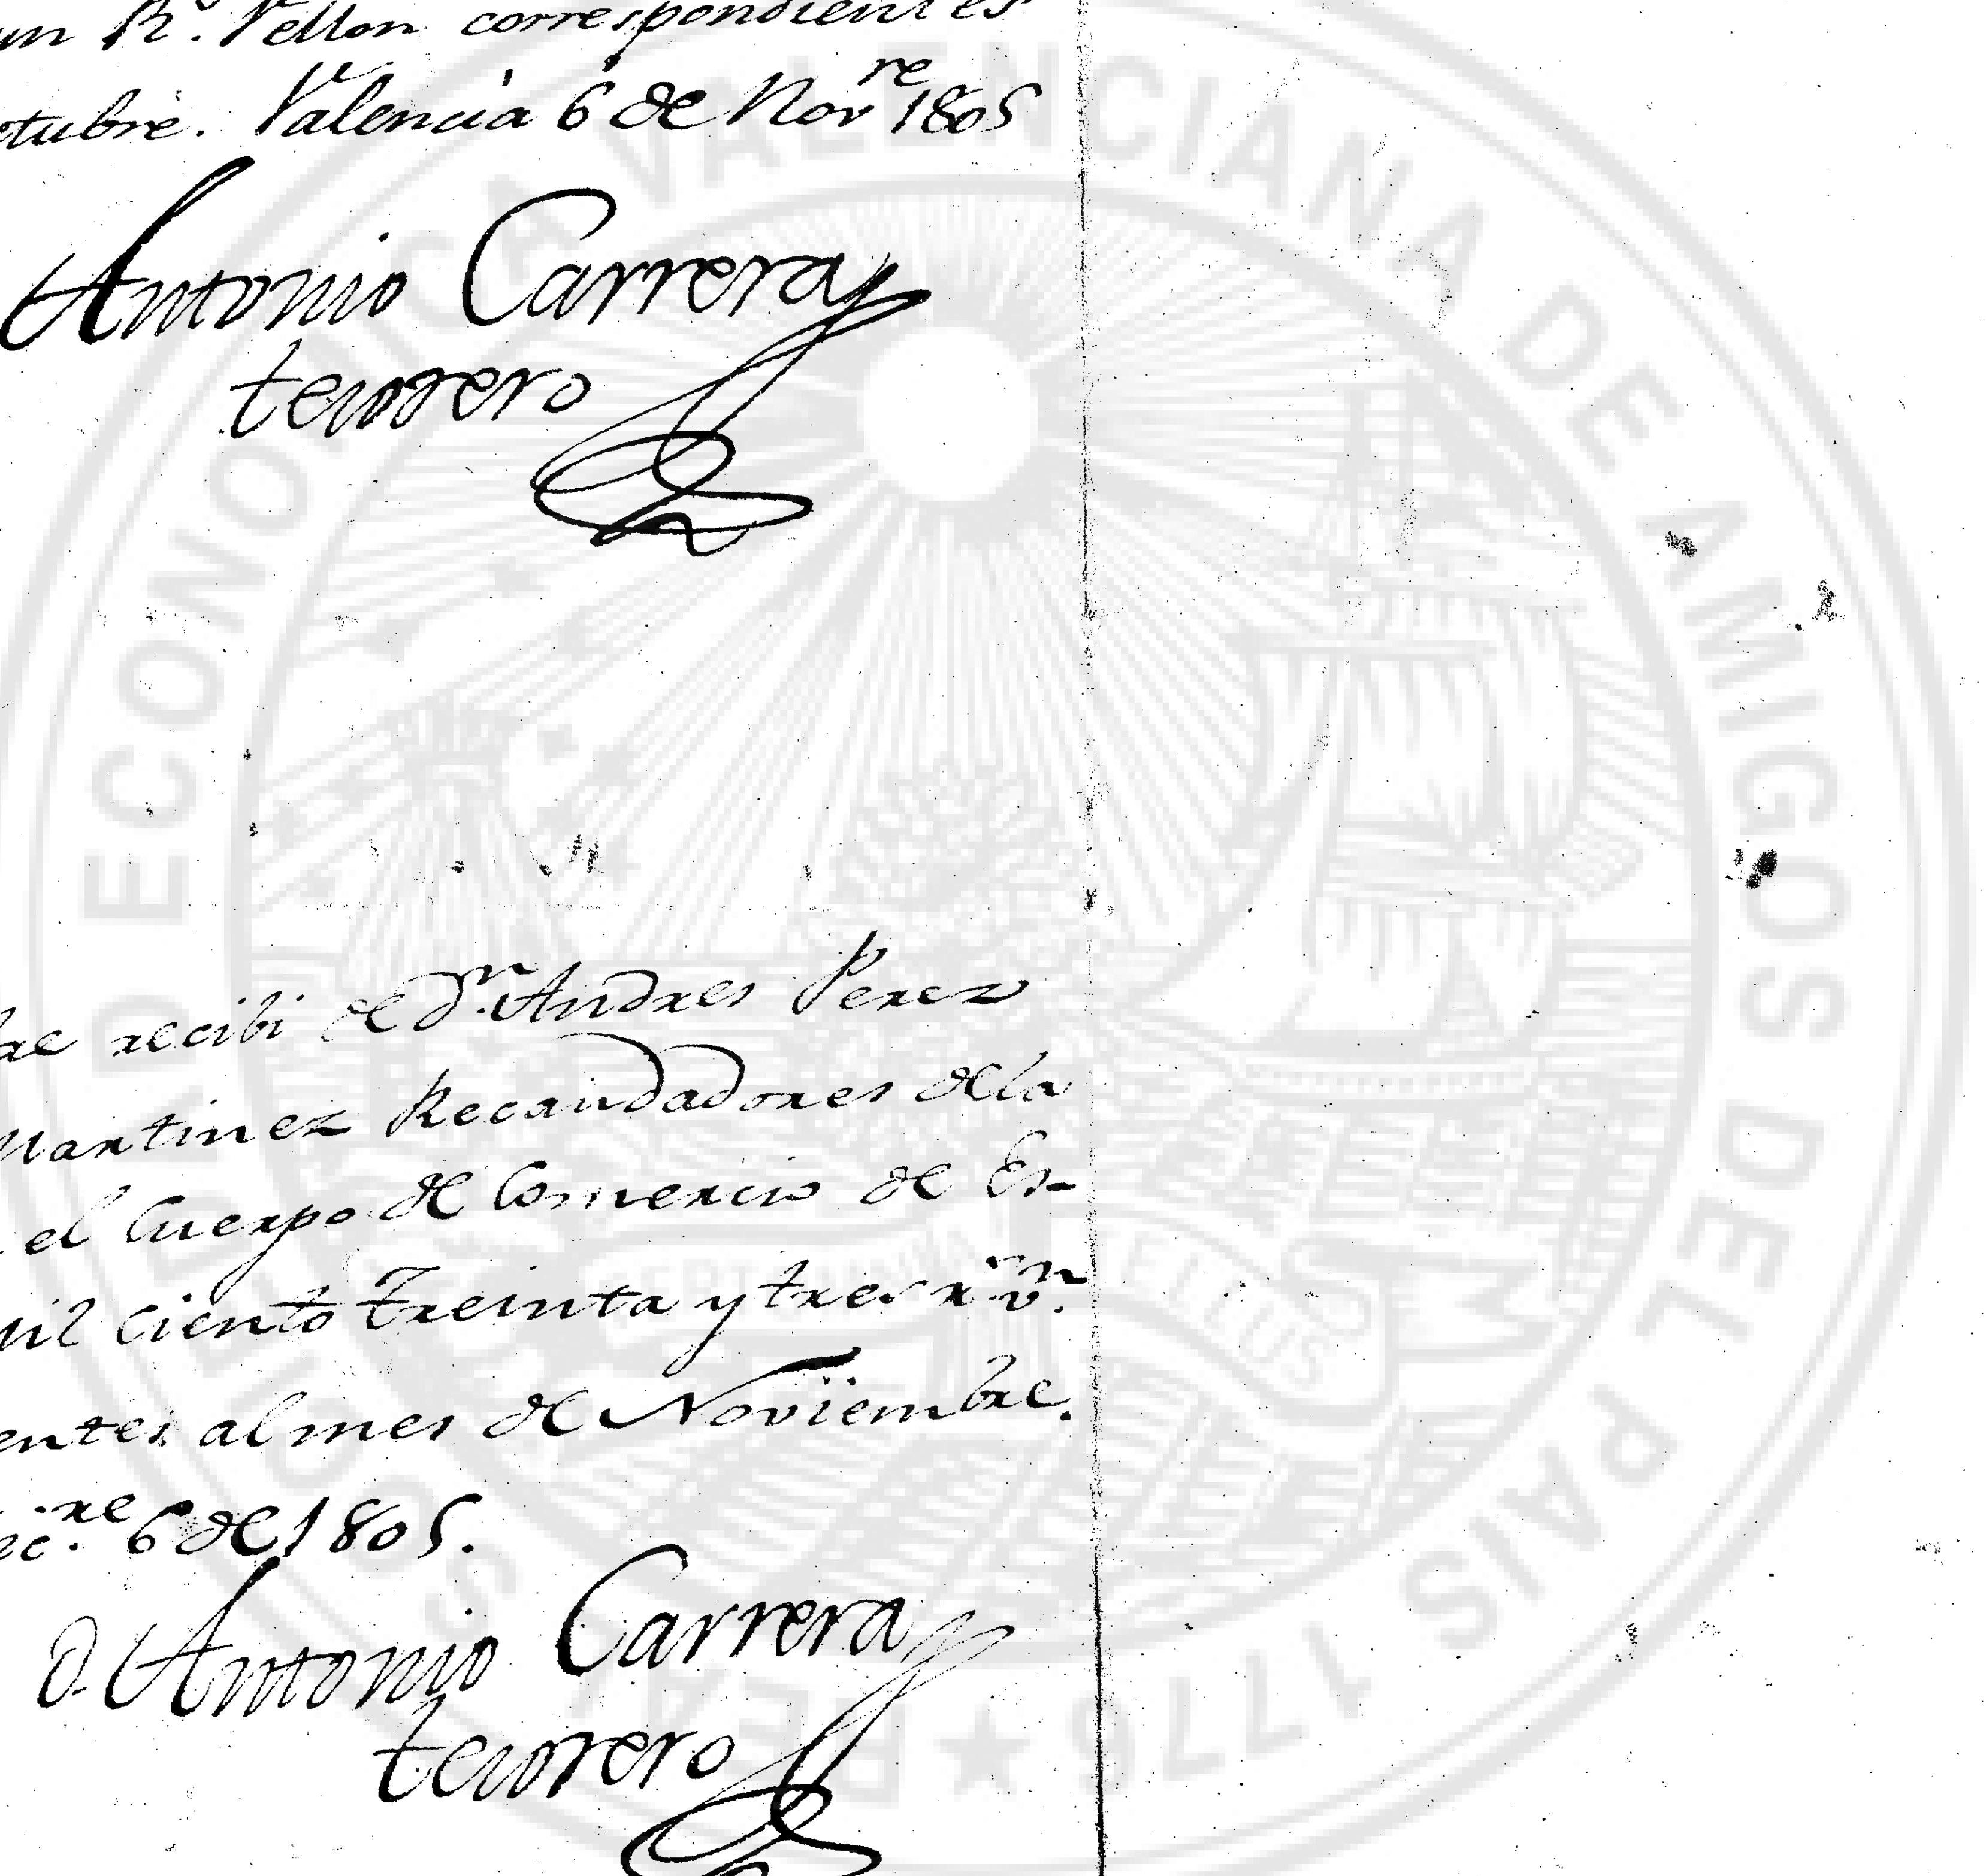 un R.ˢ Vellon correspondientes
otubre. Valencia 6 de Novʳᵉ 1805
Antonio Carrera
tesorero
recibi de Dⁿ. Andres Perez
Martinez Recaudadores dela
el Cuerpo de Comercio de Es-
mil ciento treinta y tres rˢ vⁿ.
entes al mes de Noviembre.
ic.ʳᵉ 6 de 1805.
D. Antonio Carrera
tesorero
REAL SOCIEDAD ECONOMICA VALENCIANA DE AMIGOS DEL PAIS 1776